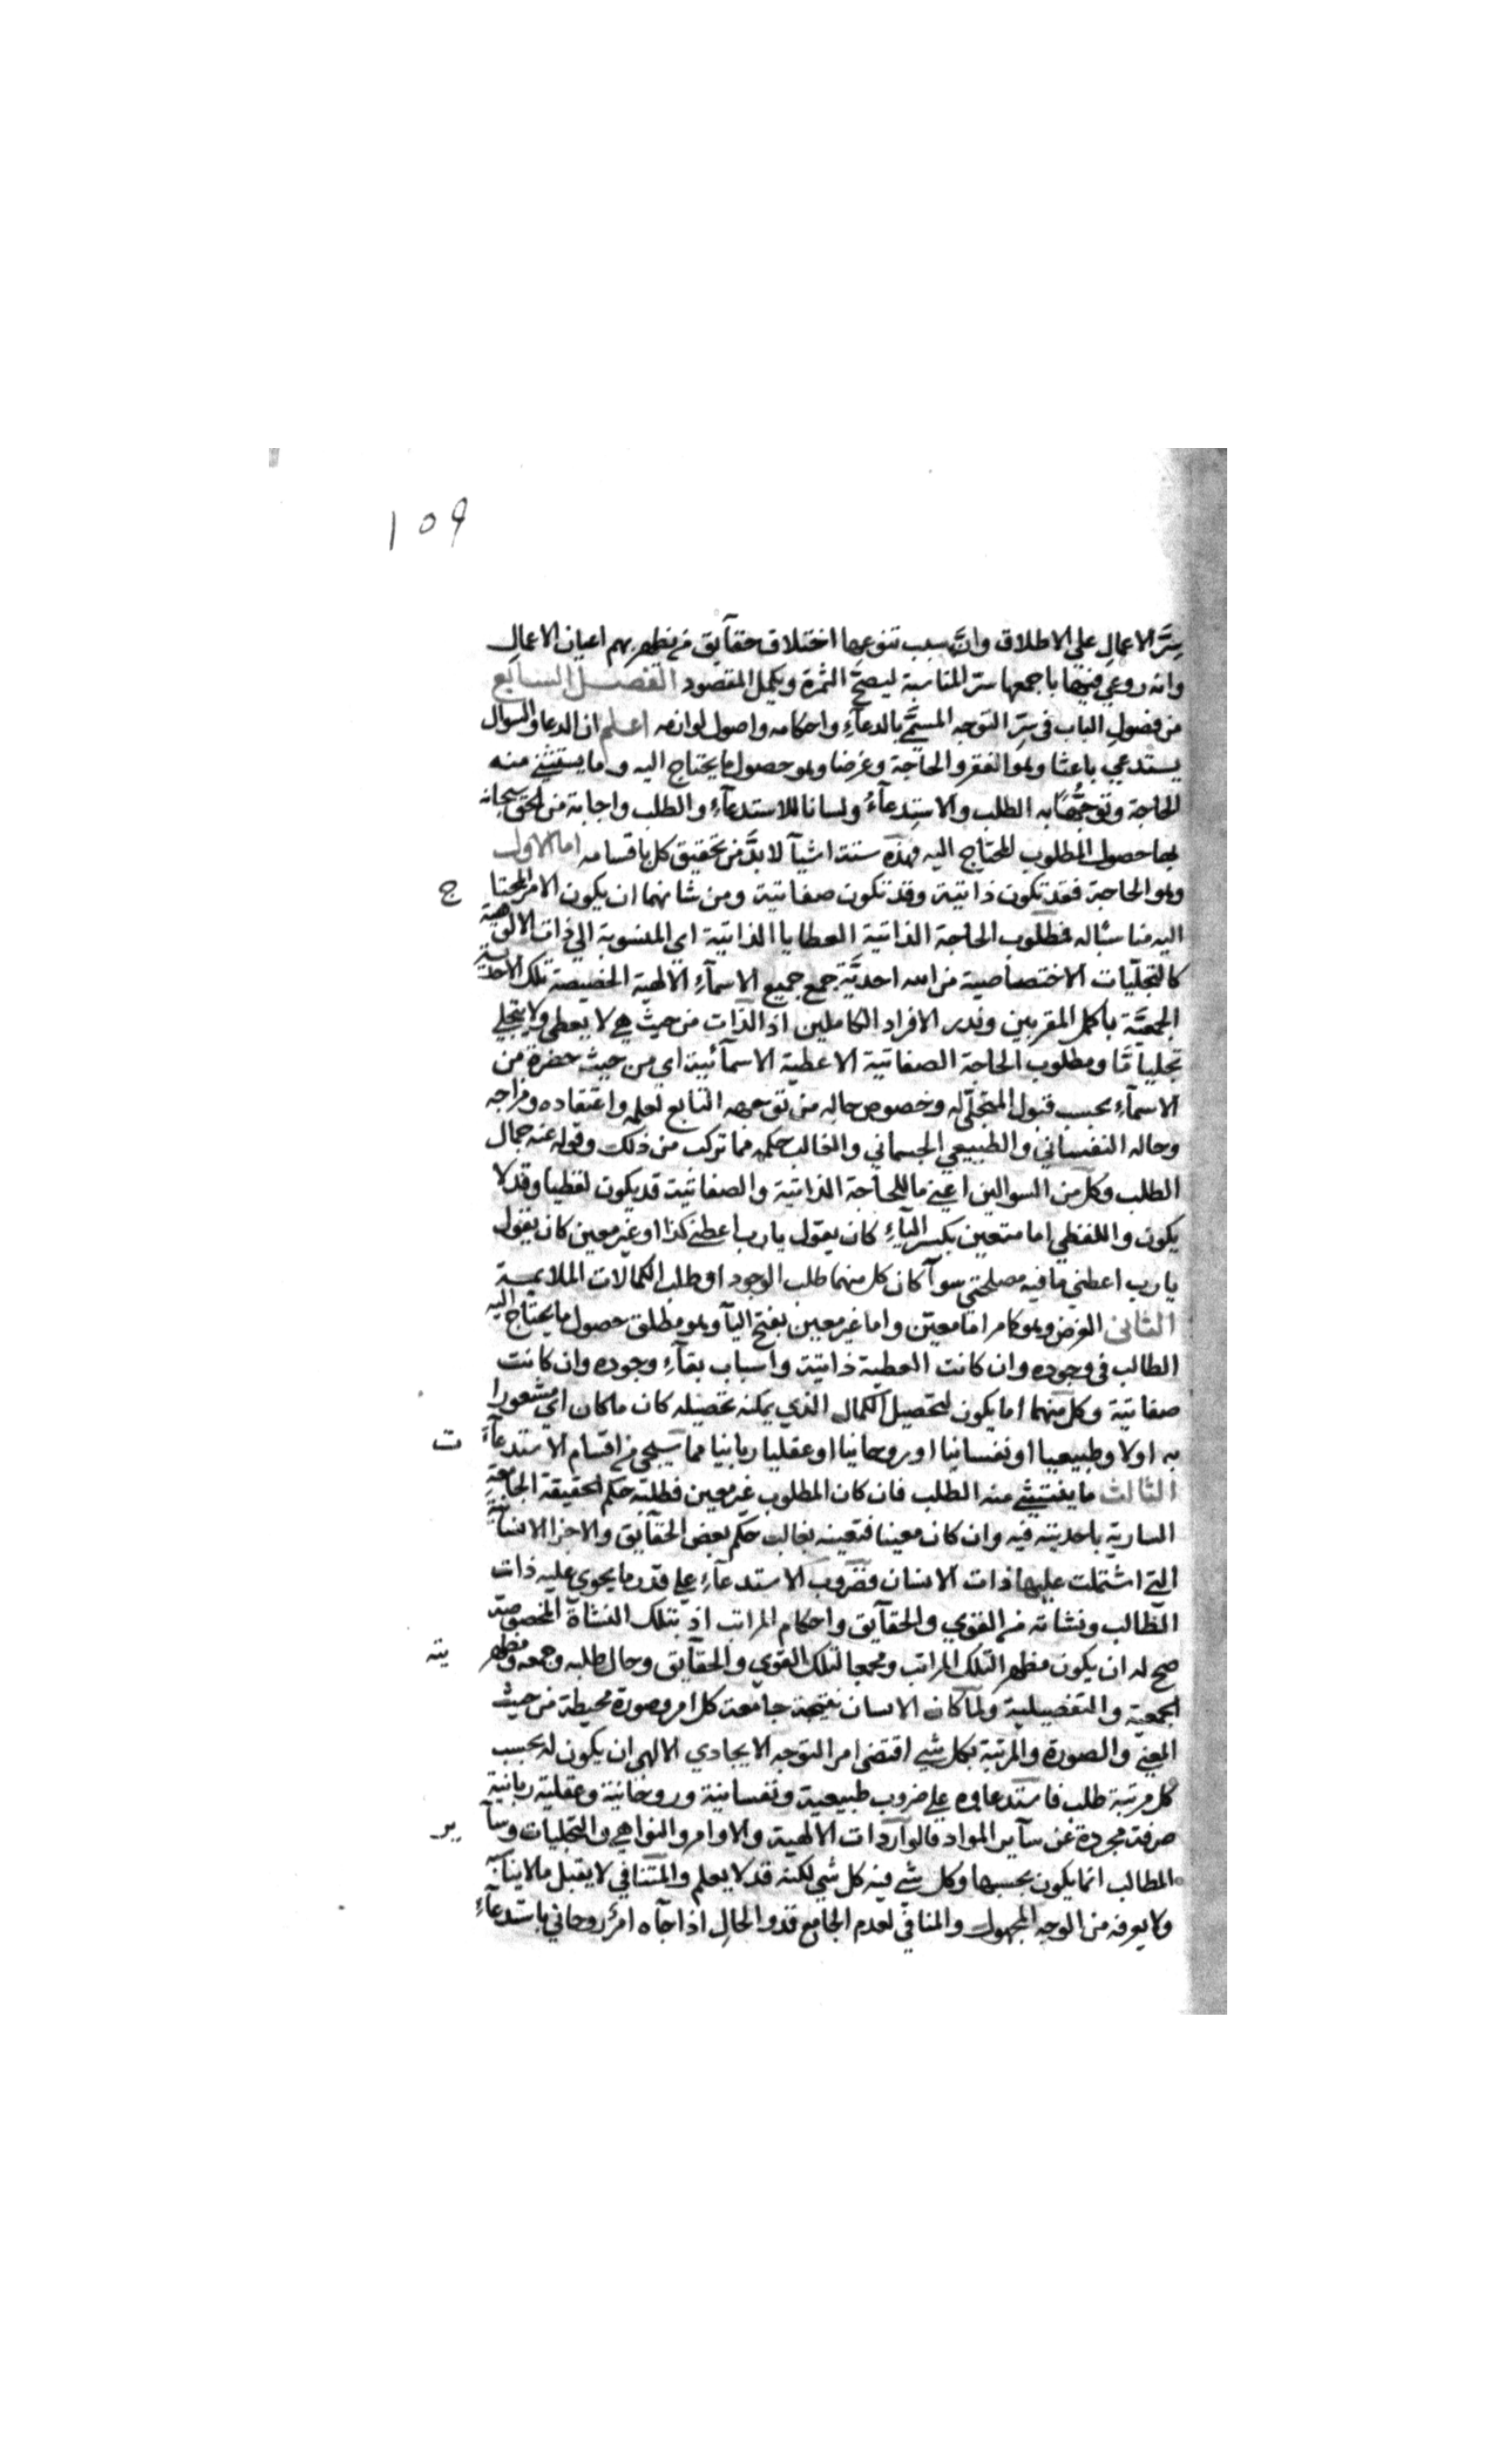 ١٥٩
سِرَّ الاعمالِ على الاطلاق وانَّ سبب تنوعها اختلاف حقآيق من يظهر بهم اعيان الاعمالِ
وانه روعي فيها باجمعها سرّ المناسبة ليصحّ الثمرة ويكمل المقصود الفصل السابع
من فصول الباب في سِرّ التوجه المسمَّى بالدعآءِ واحكامه واصول لوازمه اعلم ان الدعا والسوال
يستدعي باعثا وهو الفقر والحاجة وغرضا وهو حصول ما يحتاج اليه وما يستثنى منه
الحاجة وتوجُّهًا به الطلب والاستدعآءُ ولسانا للاستدعآءِ والطلب واجابة من الحق سبحانه
بها حصول المطلوب المحتاج اليه فهذه ستة اشيآ لا بدَّ من تحقيق كل باقسامه اما الاول
وهو الحاجة فقد تكون ذاتية وقد تكون صفاتية ومن شانهما ان يكون الامر المحتا ج
اليه مناسبا له فمطلوب الحاجة الذاتية العطايا الذاتية اي المنسوبة الى ذات الالوهية
كالتجليات الاختصاصية من الله احديَّة جمع جميع الاسمآءِ الالهية الخصيصة تلك الاحدية
الجمعيَّة باكمل المقربين وندر الافراد الكاملين اذ الذات من حيث هي لا يعطى ولا يتجلى
تجليا مّا ومطلوب الحاجة الصفاتية الاعطية الاسمآئية اي من حيث حضرة من
الاسمآءِ بحسب قبول المتجلّى له وخصوص حاله من توجهه التابع لعلمه واعتقاده ومزاجه
وحاله النفساني والطبيعي الجسماني والغالب حكمه مما تركب من ذلك وقوله عنه جمال
الطلب وكل من السوالين اعني ما للحاجة الذاتية والصفاتية قد يكون لفظيا وقد لا
يكون واللفظي اما متعين بكسر اليآءِ كان يقول يا رب اعطني كذا او غير معين كان يقول
يا رب اعطني ما فيه مصلحتي سوآ كان كل منهما طلب الوجود او طلب الكمالات الملايمة
الثاني الغرض وهو كامر اما معيّن واما غير معين بفتح اليآ وهو مطلق حصول ما يحتاج اليه
الطالب في وجوده وان كانت العطية ذاتية واسباب بقآءِ وجوده وان كانت
صفاتية وكل منهما اما يكون لتحصيل الكمال الذي يمكنه تحصيله كان ما كان اي مشعورا
به اولا وطبيعيا او نفسانيا او روحانيا او عقليا ربانيا مما سيجي من اقسام الاستدعآءَ ت
الثالث ما يستثنى منه الطلب فان كان المطلوب غير معين فطلبه حكم الحقيقة الجامعةِ
السارية باحديته فيه وان كان معينا فتعينه بغالب حكم بعض الحقآيق والاجزا الانسانية
التي اشتملت عليها ذات الانسان فضروب الاستدعآءِ على قدر ما يحوي عليه ذات
الطالب ونشاته من القوي والحقآيق واحكام المراتب اذ بتلك النشاة المخصوصة
صح له ان يكون مظهرا لتلك المراتب ومجمعا لتلك القوي والحقآيق وحال طلبه وجمعه ومظهر يته
الجمعية والتفصيلية ولمّا كان الانسان نسخة جامعة كل امر وصورة محيطة من حيث
المعنى والصورة والمرتبة بكل شي اقتضى امر التوجه الايجادي الالهى ان يكون له بحسب
كل مرتبة طلب فاستدعاوه على ضروب طبيعية ونفسانية وروحانية وعقلية ربانية
صرفة مجردة عن سآير المواد فالوآردات الالهية والاوامر والنواهي والتجليات وسآ ير
المطالب انما يكون بحسبها وكل شي فيه كل شي لكنه قد لا يعلم والمتنافي لا يقبل ما لا
ولا يعرفه من الوجه المجهول والمنافي لعدم الجامع فذو الحالِ اذا جآه امرٌ روحاني باستدعآءِ